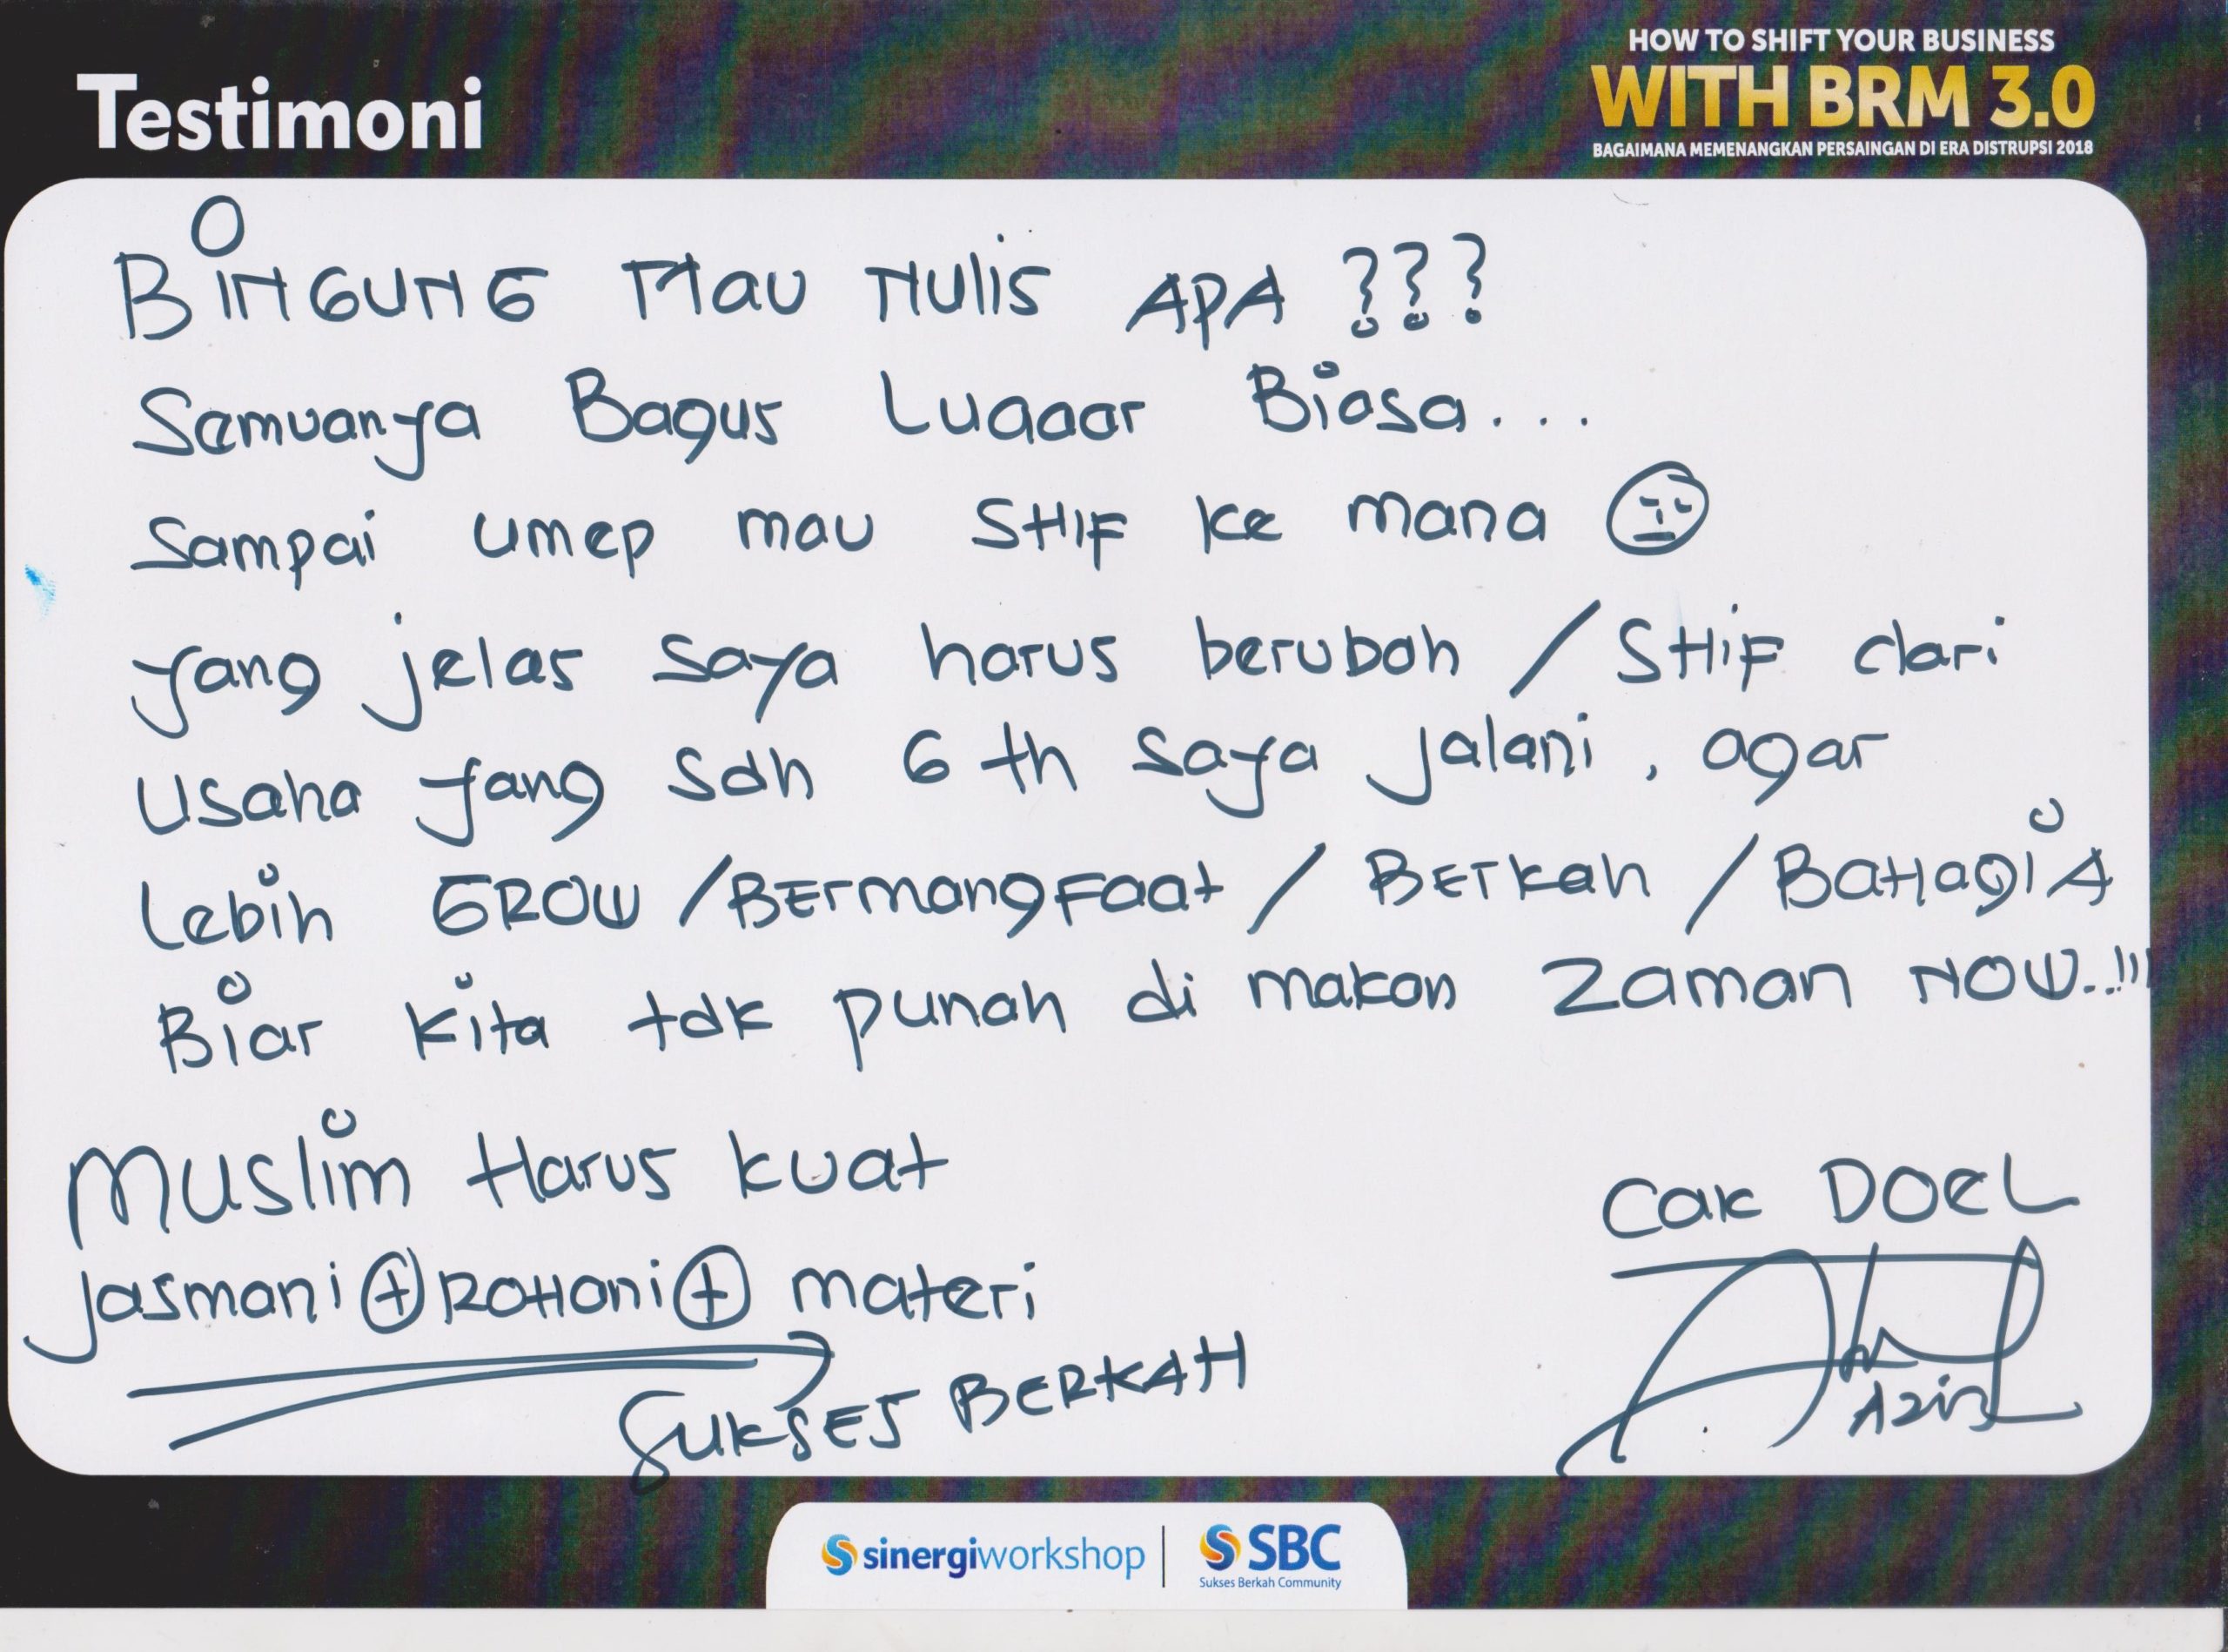 Testimoni
HOW TO SHIFT YOUR BUSINESS
WITH BRM 3.0
BAGAIMANA MEMENANGKAN PERSAINGAN DI ERA DISTRUPSI 2018
BINGUNG Mau Nulis APA ???
Semuanya Bagus Luaaar Biasa...
Sampai umep mau SHIF ke mana
yang jelas saya harus berubah / SHIF dari
Usaha yang sdh 6 th saya jalani, agar
Lebih GROW / BErmangFaat / BErkah / BaHagiA
Biar kita tdk punah di makan Zaman NOW..!!!
Muslim Harus kuat
Jasmani + ROHani + materi
SUKSES BERKAH
Cak DOEL
Aziz
sinergiworkshop
SBC
Sukses Berkah Community